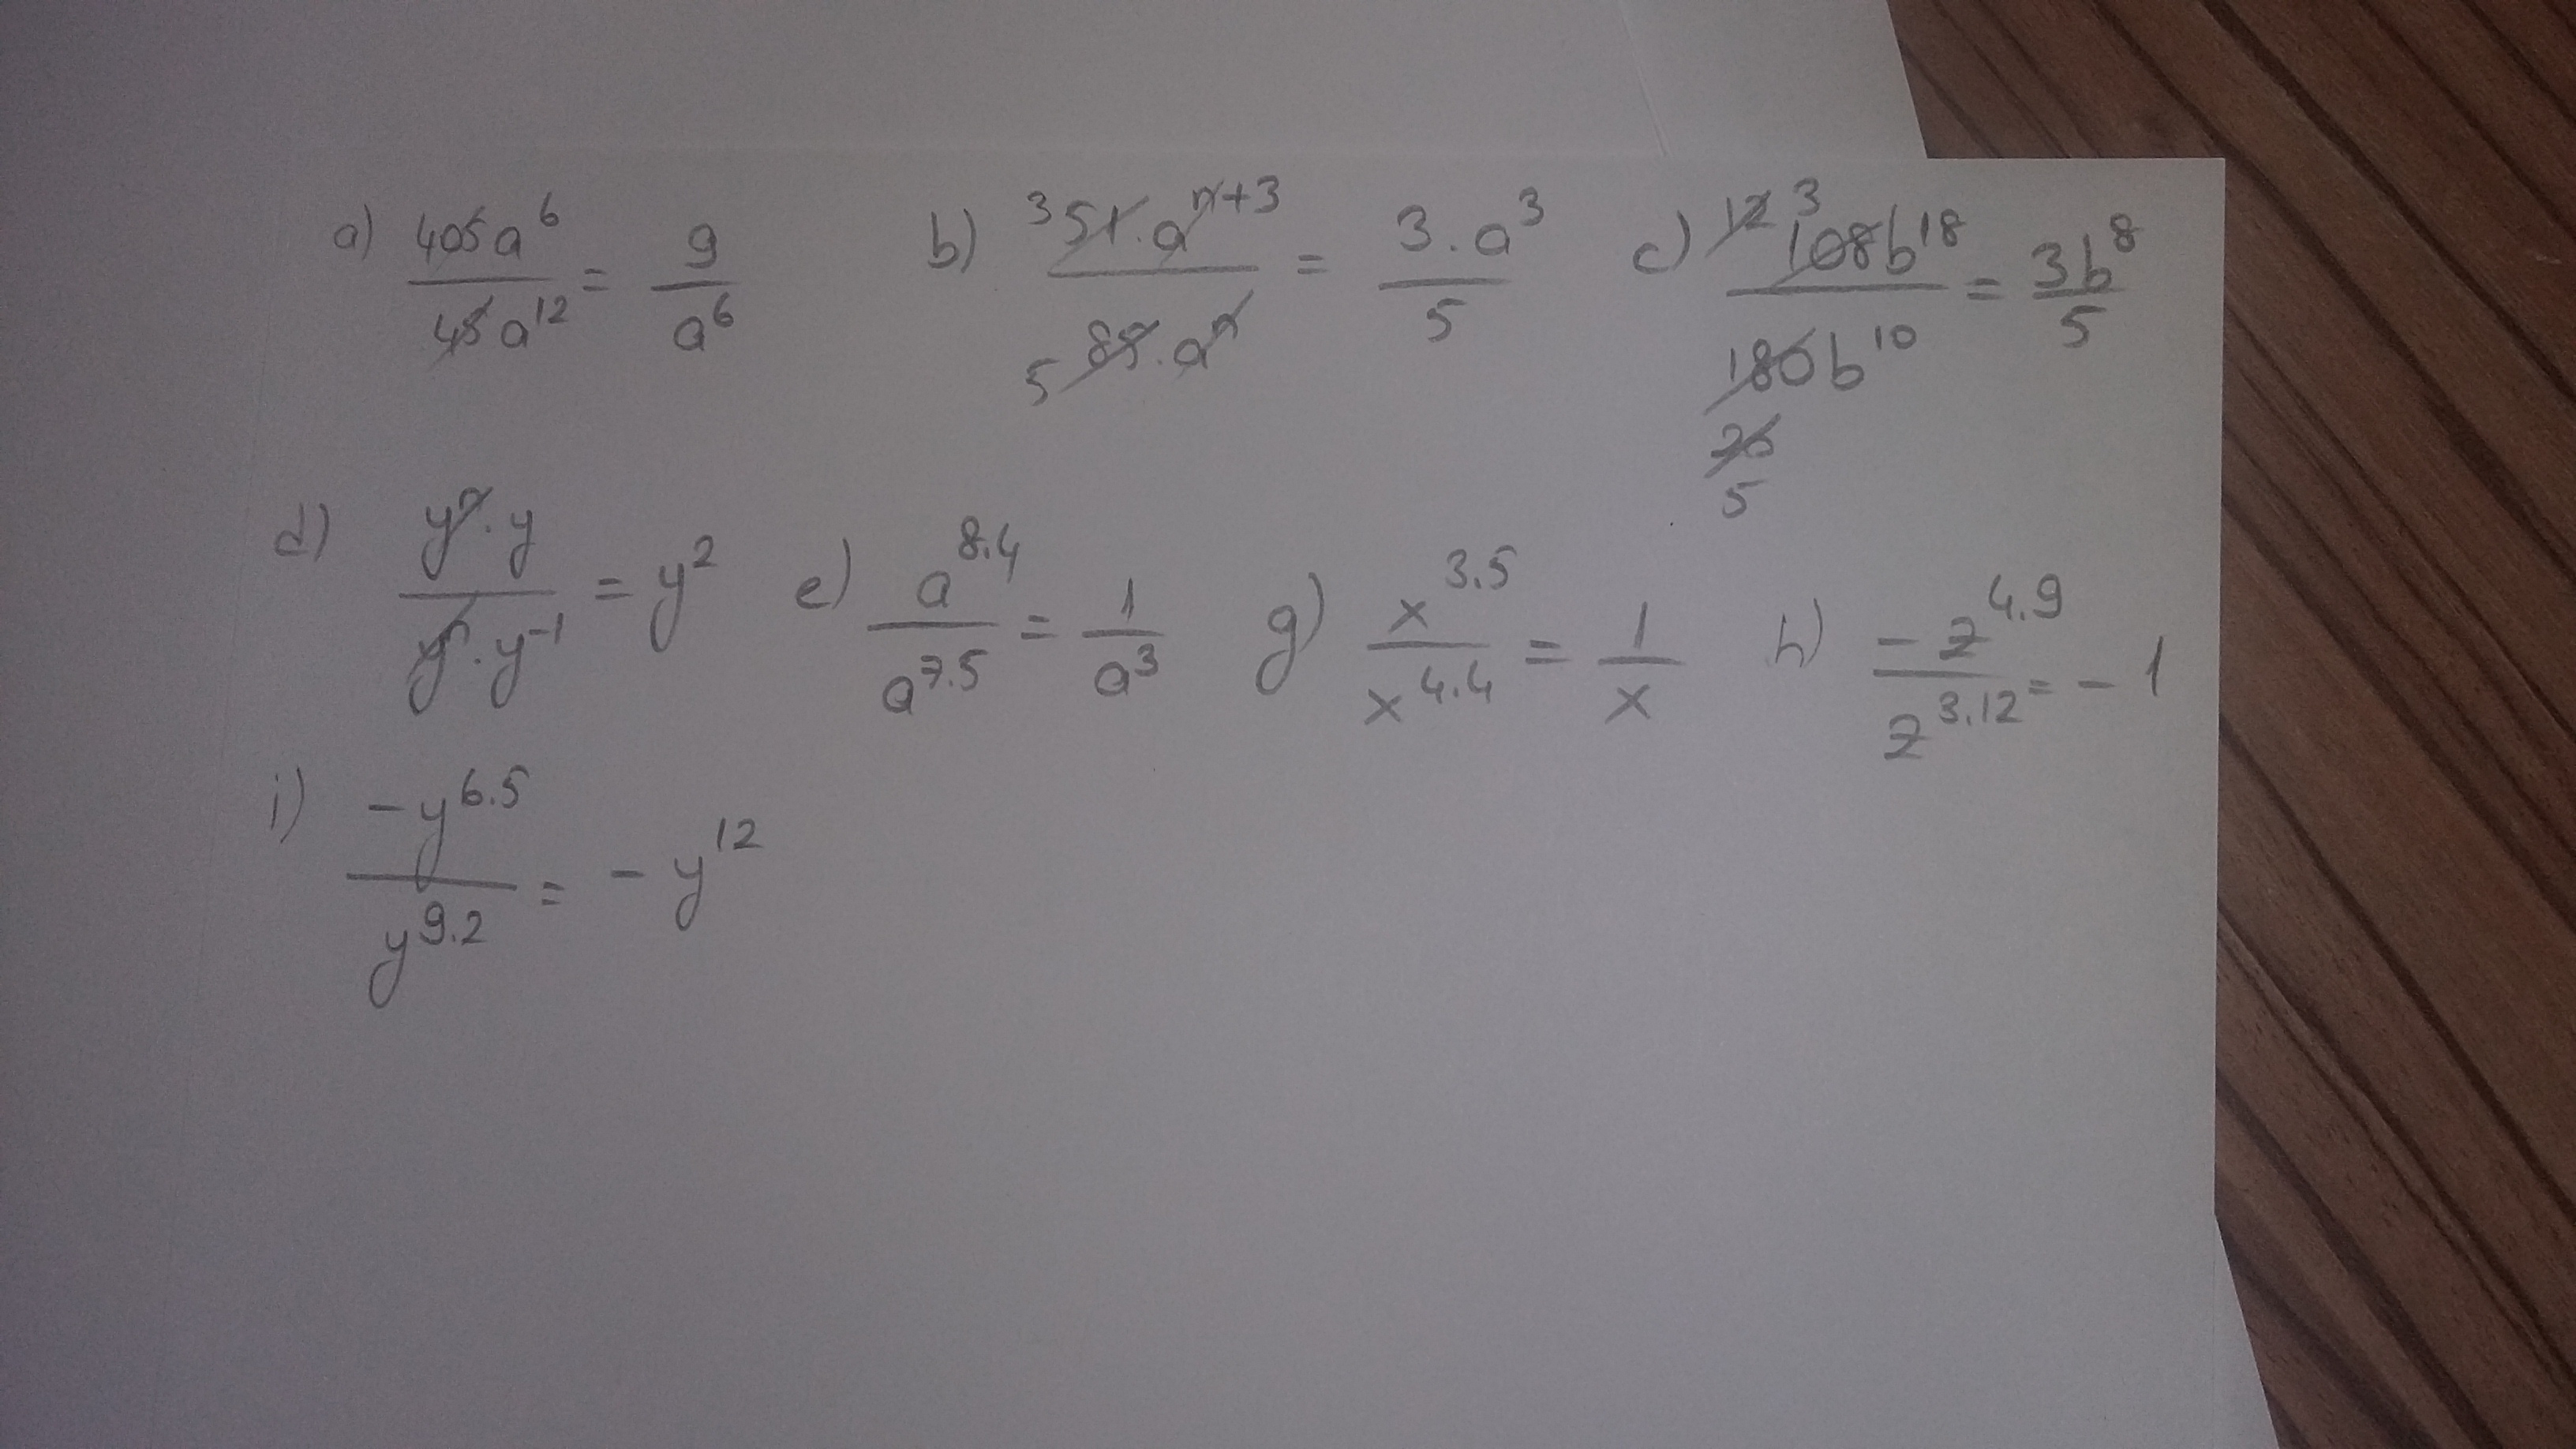 a) 405a⁶/45a¹² = 9/a⁶ b) ³51.aⁿ⁺³/5 85.aⁿ = 3.a³/5 c) 12 3 108b¹⁸/180b¹⁰ = 3b⁸/5
20
5
d) yⁿ.y/yⁿ.y⁻¹ = y² e) a^8.4/a^7.5 = 1/a³ g) x^3.5/x^4.4 = 1/x h) -z^4.9/z^3.12 = -1
i) -y^6.5/y^9.2 = -y¹²